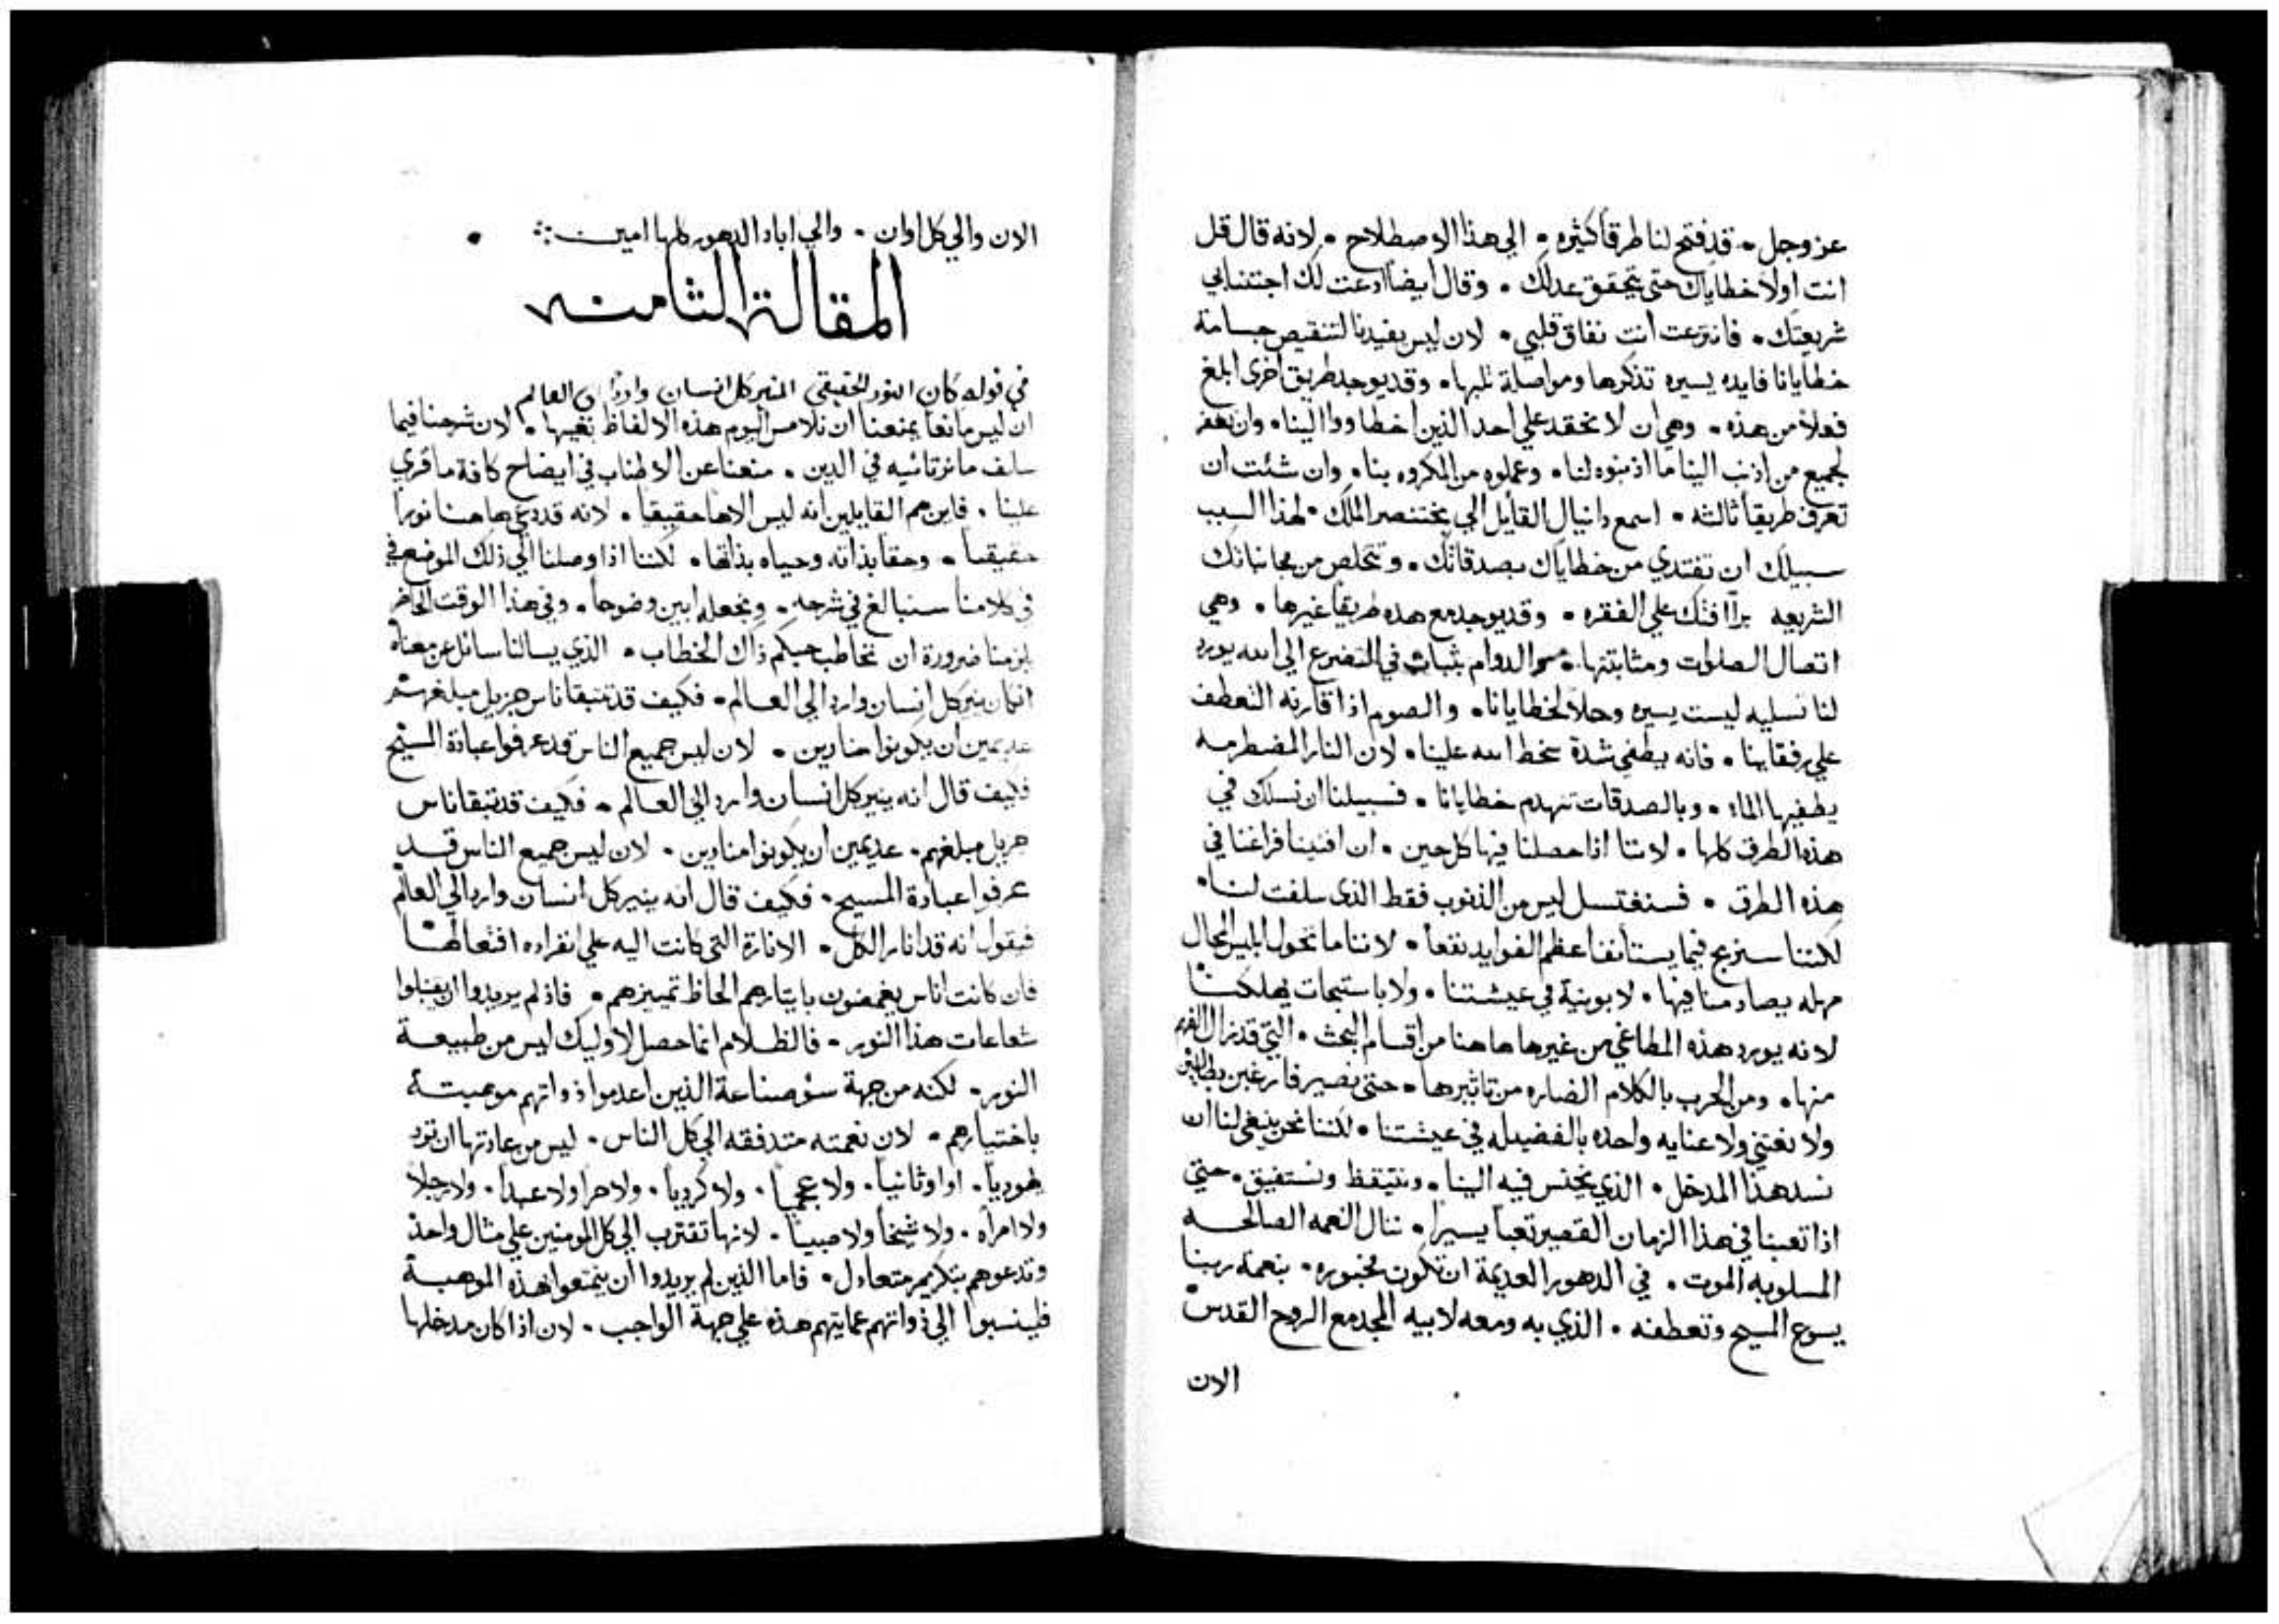 عز وجل • قد فتح لنا طرقاً كثيره • الي هذا الاصطلاح • لانه قال قل
انت اولاً خطاياك حتى يتحقق عدلك • وقال ايضاً ادعت لك اجتنابي
شريعتك • فانتزعت انت نفاق قلبي • لان ليس يفيدنا لتنقيص جسامة
خطايانا فايده يسيره تذكرها ومواصلة ثلبها • وقد يوجد طريق اخرى ابلغ
فعلاً من هذه • وهي ان لا نحقد علي احد الذين اخطاووا الينا • وان نغفر
لجميع من اذنب الينا ما اذنبوه لنا • وعملوه من المكروه بنا • وان شئت ان
تعرف طريقاً ثالثه • اسمع دانيال القايل الي بختنصر الملك • لهذا السبب
سبيلك ان تفتدي من خطاياك بصدقاتك • وتتخلص من مجانباتك
الشريعه برأافتك علي الفقره • وقد يوجد مع هده طريقاً غيرها • وهي
اتصال الصلوات ومثابتتها • الدوام بثبات في التضرع الي الله يورد
لنا تسليه ليست يسيره وحلاً لخطايانا • والصوم اذا قارنه التعطف
علي رفقاينا • فانه يطفي شدة سخط الله علينا • لان النار المضطرمه
يطفيها الماء • وبالصدقات تنهدم خطايانا • فسبيلنا ان نسلك في
هذه الطرق كلها • لاننا اذا حصلنا فيها كل حين • ان افنينا فراغنا في
هذه الطرق • فسنغتسل ليس من الذنوب فقط الذى سلفت لنا •
لكننا سنربح فيما يستأنف اعظم الفوايد نفعاً • لاننا ما نخول ابليس المحال
مهله يصادمنا فيها • لا بونية في عيشتنا • ولا باستبحاث يهلكنا
لانه يورد هذه المطاغي من غيرها هاهنا من اقسام البحث • التي قد نزال الفهم
منها • ومن الحرب بالكلام الضاره من تاثيرها • حتى نصير فارغين بطالين
ولا نعتني ولا عنايه واحده بالفضيله في عيشتنا • لكننا نحن ينبغي لنا ان
نسد هذا المدخل • الذي يختنس فيه الينا • ونتيقظ ونستفيق • حتى
اذا تعبنا في هذا الزمان القصير تعباً يسيراً • ننال النعمه الصالحه
المسلوبه الموت • في الدهور العديمة ان تكون مخبوره • بنعمة ربنا
يسوع المسيح وتعطفه • الذي به ومعه لابيه المجد مع الروح القدس
الان
الان والي كل اوان • والي اباد الدهور كلها امين •
المقالة الثامنه
في قوله كان النور الحقيقي المنير كل انسان وارداً الي العالم
ان ليس مانعاً يمنعنا ان نلامس اليوم هذه الالفاظ نفسها • لان شرحنا فيما
سلف ما نرتائيه في الدين • منعنا عن الاطناب في ايضاح كافة ما قري
علينا • فاين هم القايلين انه ليس الاهاً حقيقياً • لانه قد دعي هاهنا نوراً
حقيقياً • وحقاً بذاته وحياه بذاتها • لكننا اذا وصلنا الي ذلك الموضع في
في كلامنا سنبالغ في شرحه • ونجعله ابين وضوحاً • وفي هذا الوقت الحاضر
يلزمنا ضرورة ان نخاطب حبكم ذاك الخطاب • الذي يسالنا سائل عن معناه
ان كان ينير كل انسان وارد الي العالم • فكيف قد تتبقا ناس جزيل مبلغهم
عديمين ان يكونوا منارين • لان ليس جميع الناس قد عرفوا عبادة المسيح
فكيف قال انه ينير كل انسان وارد الي العالم • فكيف قد تتبقا ناس
جزيل مبلغهم • عديمين ان يكونوا منارين • لان ليس جميع الناس قد
عرفوا عبادة المسيح • فكيف قال انه ينير كل انسان وارد الي العالم
فيقول انه قد انار الكل • الانارة التي كانت اليه علي انفراده افتعالها
فان كانت اناس يغمضون بايثارهم الحاظ تمييزهم • فاذ لم يريدوا ان يقبلوا
شعاعات هذا النور • فالظلام انما حصل لاوليك ليس من طبيعة
النور • لكنه من جهة سؤ صناعة الذين اعدموا ذواتهم موهبته
باختيارهم • لان نعمته متدفقه الي كل الناس • ليس من عادتها ان ترد
يهودياً • او اوثانياً • ولا عجمياً • ولا كردياً • ولا حراً ولا عبداً • ولا رجلاً
ولا امراه • ولا شيخاً ولا صبياً • لانها تقترب الي كل المومنين علي مثال واحد
وتدعوهم بتكريم متعادل • فاما الذين لم يريدوا ان يتمتعوا هذه الموهبة
فلينسبوا الي ذواتهم عمايتهم هذه علي جهة الواجب • لان اذا كان مدخلها